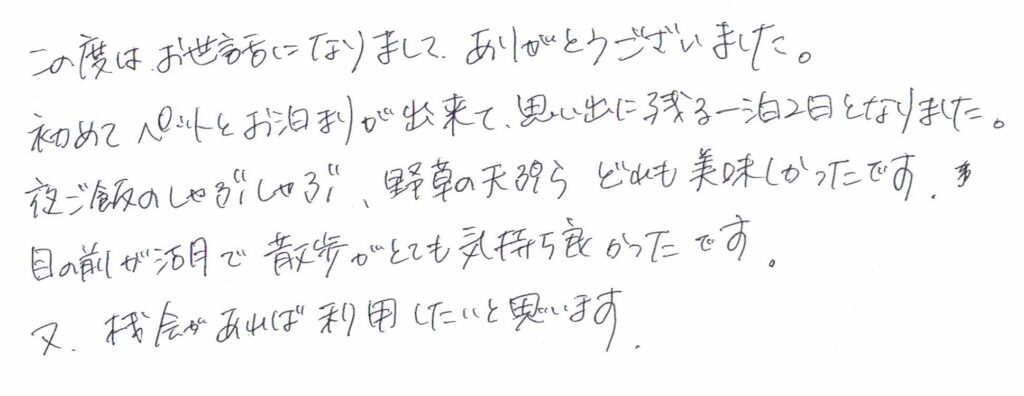 この度は、お世話になりまして、ありがとうございました。
初めてペットとお泊まりが出来て、思い出に残る一泊2日となりました。
夜ご飯のしゃぶしゃぶ、野草の天ぷら どれも美味しかったです。
目の前が湖で 散歩がとても気持ち良かったです。
又、機会があれば利用したいと思います。